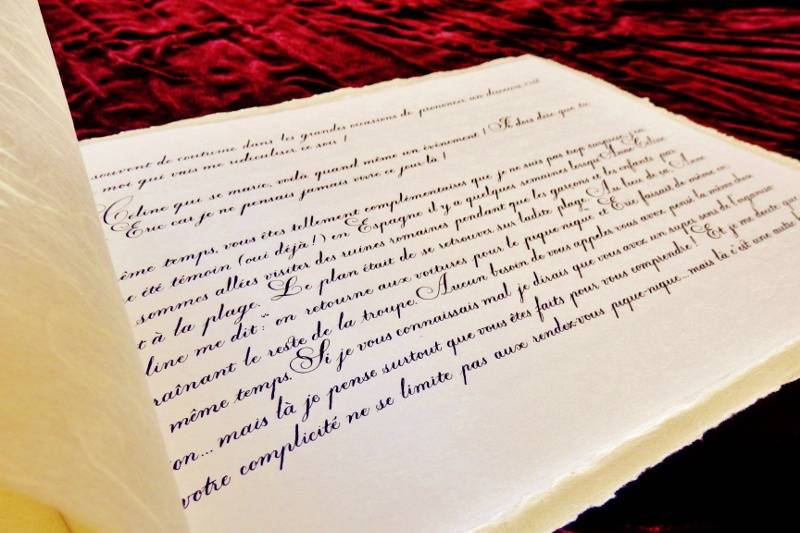 souvent de coutume dans les grandes occasions de prononcer un discours
moi qui vais me ridiculiser ce soir !
Céline qui se marie, voilà quand même un évènement ! Je dois dire que
Eric car je ne pensais jamais vivre ce jour-là !
ême temps, vous êtes tellement complémentaires que je ne suis pas trop surprise. J'en
e été témoin (oui déjà!) en Espagne il y a quelques semaines lorsqu'Anne, Céline
sommes allées visiter des ruines romaines pendant que les garçons et les enfants
t à la plage. Le plan était de se retrouver sur ladite plage. Au lieu de ça, Anne
line me dit : " on retourne aux voitures pour le pique-nique " et Eric faisait de même en
raînant le reste de la troupe. Aucun besoin de vous appeler vous avez pensé la même chose
même temps. Si je vous connaissais mal je dirais que vous avez un super sens de l'organisa
on... mais là je pense surtout que vous êtes faits pour vous comprendre! Et je me doute que
votre complicité ne se limite pas aux rendez-vous pique-nique... mais là c'est une autre